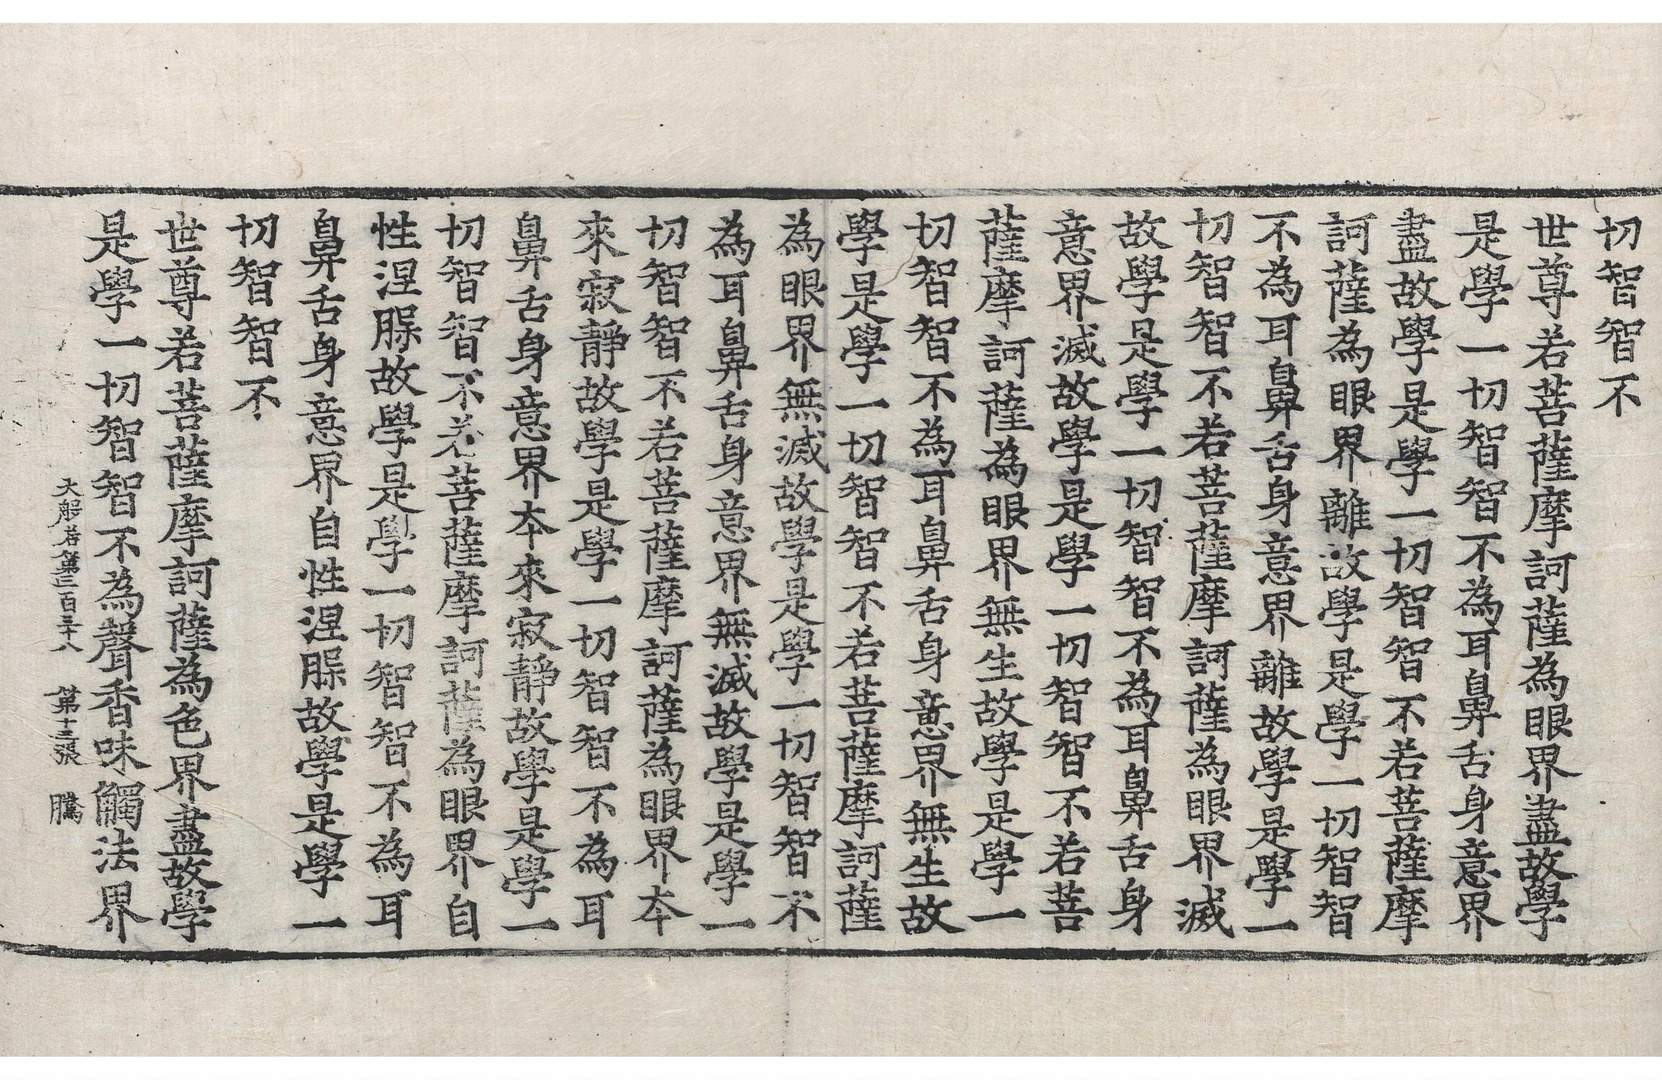 切智智不
世尊若菩薩摩訶薩為眼界盡故學
是學一切智智不為耳鼻舌身意界
盡故學是學一切智智不若菩薩摩
訶薩為眼界離故學是學一切智智
不為耳鼻舌身意界離故學是學一
切智智不若菩薩摩訶薩為眼界滅
故學是學一切智智不為耳鼻舌身
意界滅故學是學一切智智不若菩
薩摩訶薩為眼界無生故學是學一
切智智不為耳鼻舌身意界無生故
學是學一切智智不若菩薩摩訶薩
為眼界無滅故學是學一切智智不
為耳鼻舌身意界無滅故學是學一
切智智不若菩薩摩訶薩為眼界本
來寂靜故學是學一切智智不為耳
鼻舌身意界本來寂靜故學是學一
切智智不若菩薩摩訶薩為眼界自
性涅腂故學是學一切智智不為耳
鼻舌身意界自性涅腂故學是學一
切智智不
世尊若菩薩摩訶薩為色界盡故學
是學一切智智不為聲香味觸法界
大般若第三百三十八 第十三張 騰